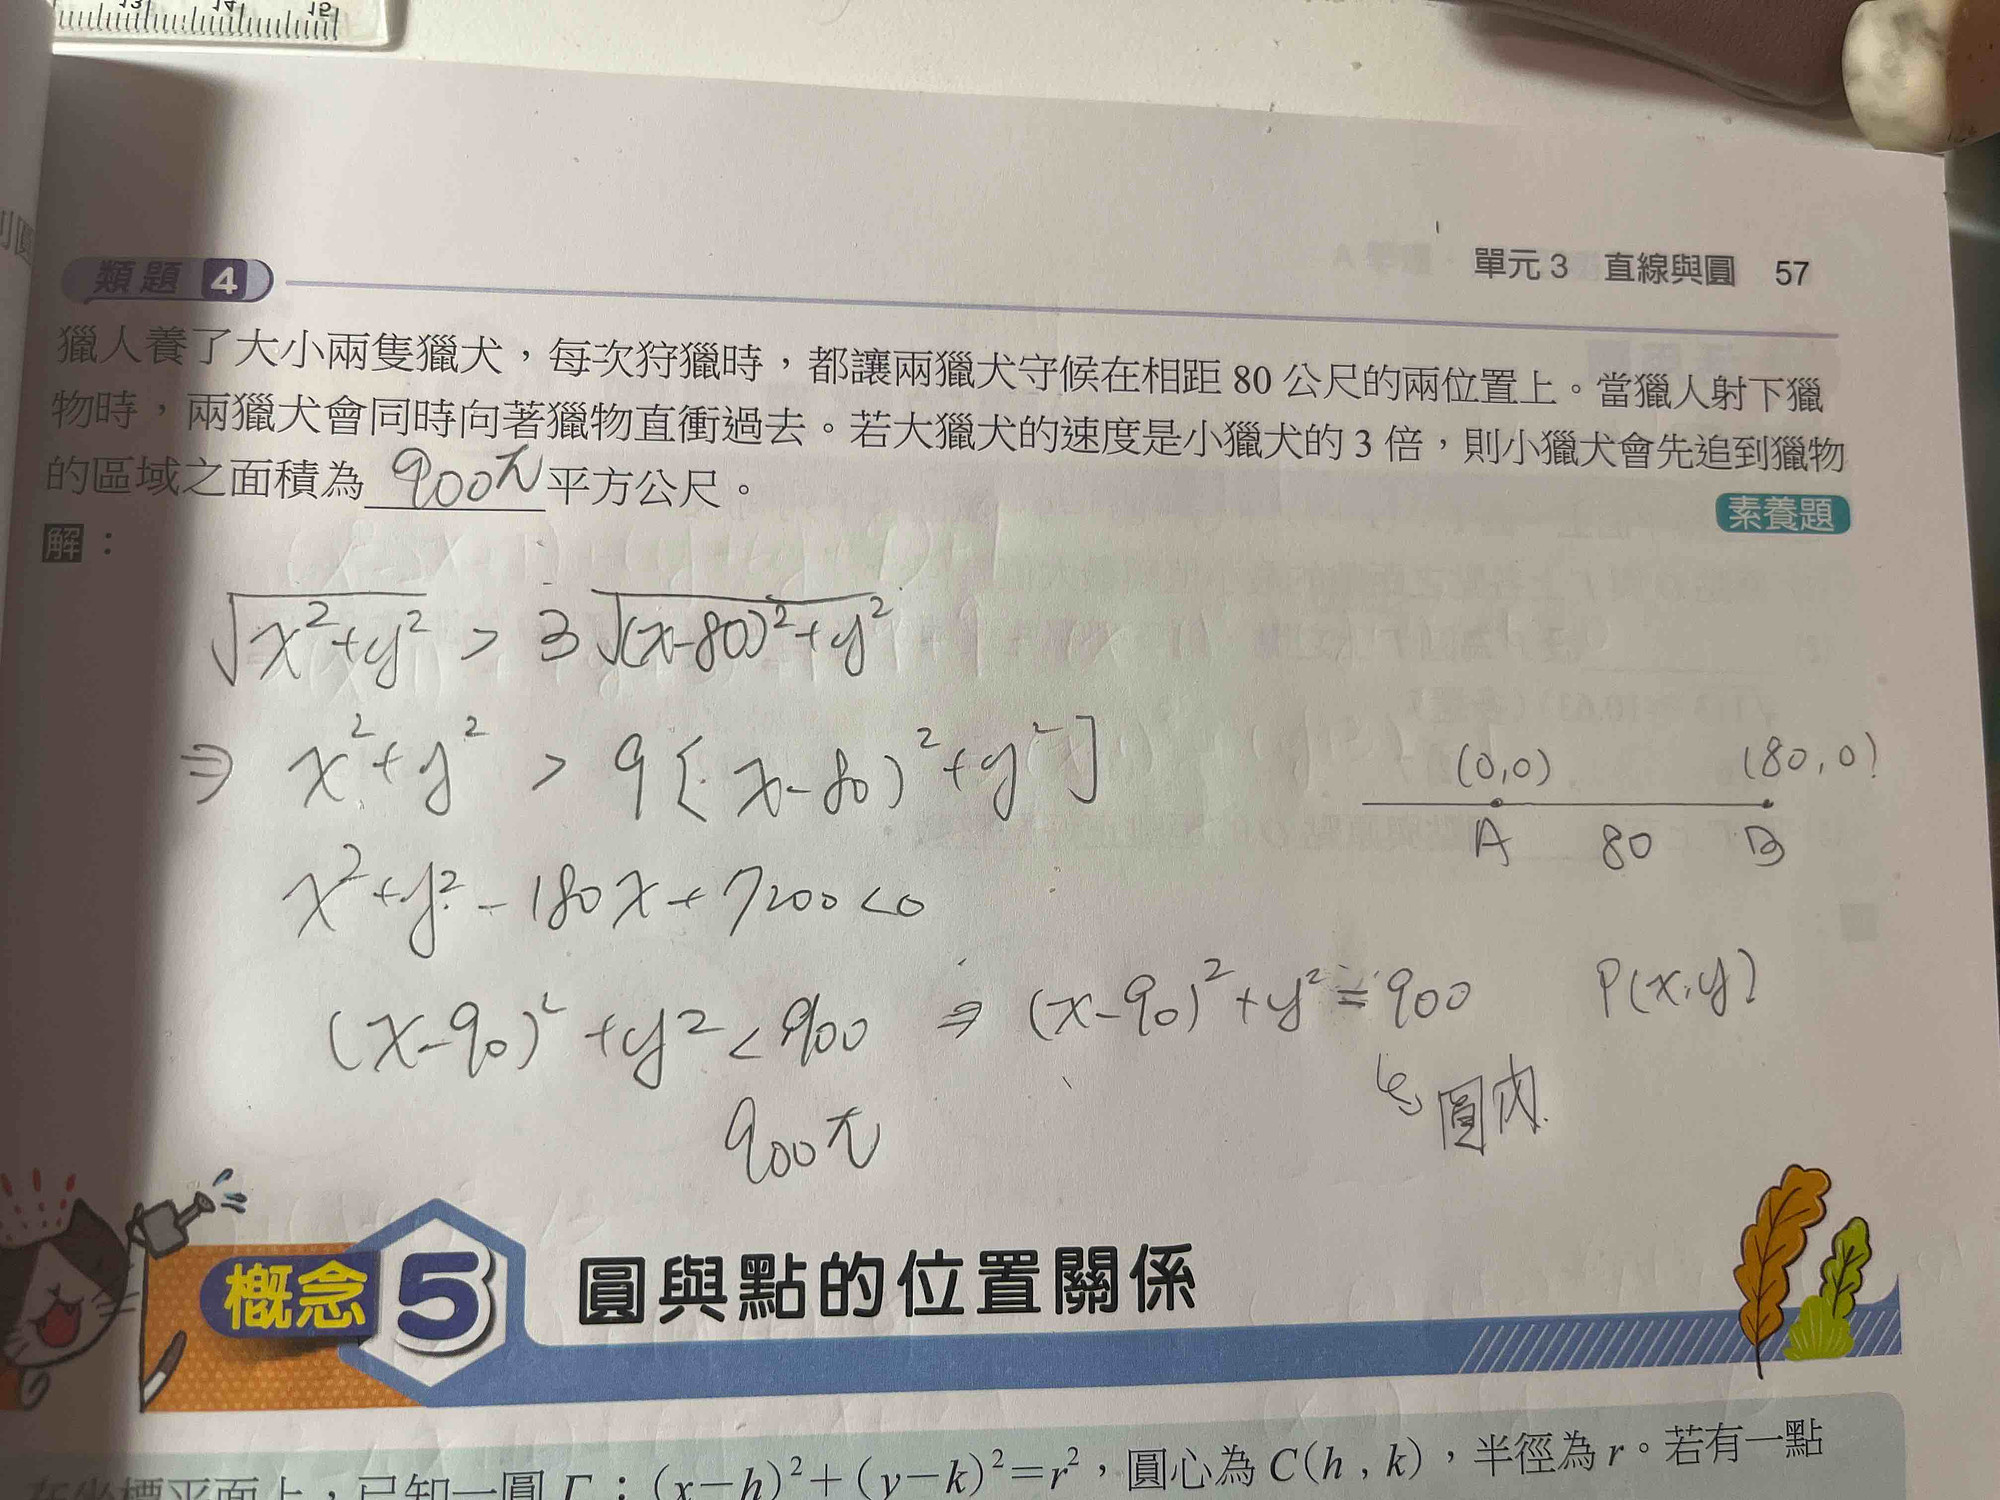 13 14 15
單元 3 直線與圓 57
類題 4
獵人養了大小兩隻獵犬,每次狩獵時,都讓兩獵犬守候在相距 80 公尺的兩位置上。當獵人射下獵
物時,兩獵犬會同時向著獵物直衝過去。若大獵犬的速度是小獵犬的 3 倍,則小獵犬會先追到獵物
的區域之面積為 900π 平方公尺。
素養題
解:
√(x²+y²) > 3√((x-80)²+y²)
⇒ x²+y² > 9[(x-80)²+y²]
(0,0) (80,0)
A 80 B
x²+y²-180x+7200<0
(x-90)²+y²<900 ⇒ (x-90)²+y²=900 P(x,y)
↳圓內
900π
概念 5 圓與點的位置關係
在坐標平面上,已知一圓 Γ:(x-h)²+(y-k)²=r²,圓心為 C(h, k),半徑為 r。若有一點